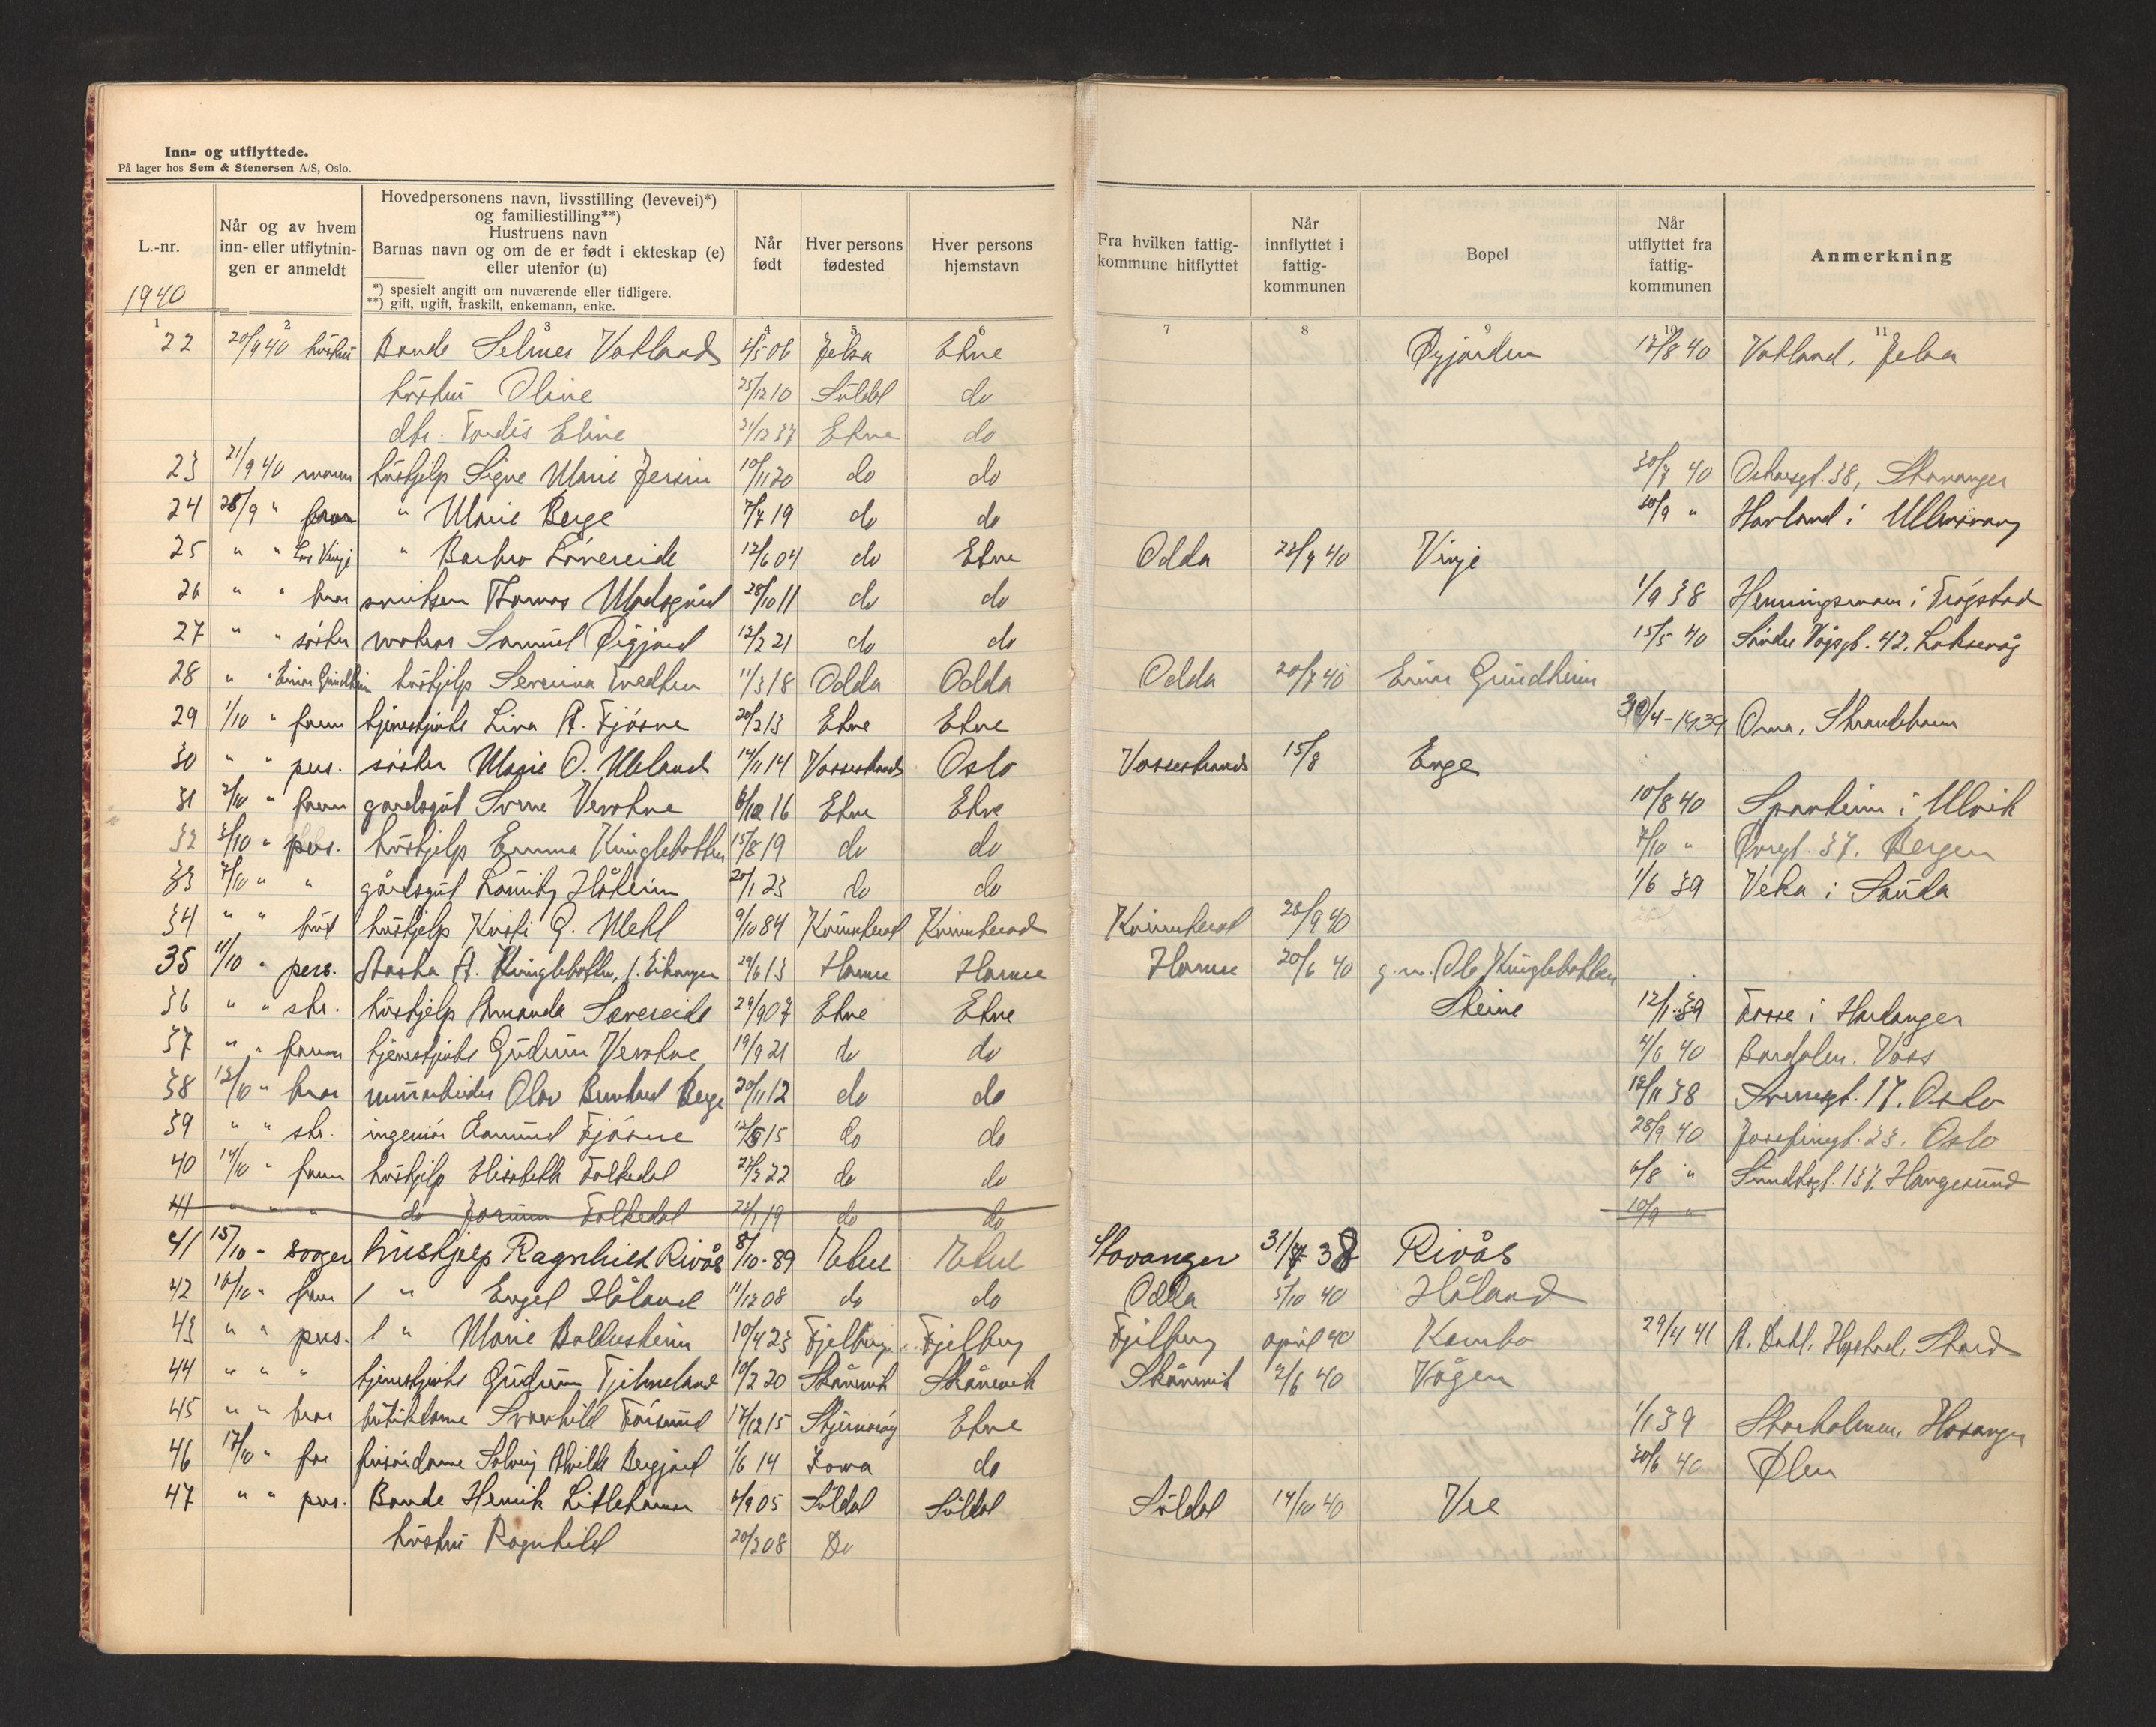 Inn- og utflyttede.
På lager hos Sem & Stenersen A/S, Oslo.
L.-nr.
1940
Når og av hvem inn- eller utflytningen er anmeldt
Hovedpersonens navn, livsstilling (levevei)*) og familiestilling**)
Hustruens navn
Barnas navn og om de er født i ekteskap (e) eller utenfor (u)
*) spesielt angitt om nuværende eller tidligere.
**) gift, ugift, fraskilt, enkemann, enke.
Når født
Hver persons fødested
Hver persons hjemstavn
Fra hvilken fattigkommune hitflyttet
Når innflyttet i fattigkommunen
Bopel
Når utflyttet fra fattigkommunen
Anmerkning
1 2 3 4 5 6 7 8 9 10 11
22 20/9 40 hústrú Bonde Selmer Vatland 3/5 06 Jelsa Etne Øygarden 17/8 40 Vatland, Jelsa
hústrú Oline 25/12 10 Súldal do
dtr. Tordis Eline 21/12 37 Etne do
23 21/9 40 húshjelp Signe Marie 10/11 20 do do 30/7 40 Oskarsgt. 38, Stavanger
24 28/9 " " Marie Berge 7/7 19 do do 30/9 " Hovland i Ullensvang
25 " " " Barbro 12/6 04 do Etne Odda 22/9 40 Vinje
26 " " bror Thomas 28/10 11 do do 1/9 38 i Trögstad
27 " " söster Samúel 12/2 21 do do 15/5 40 42, Laksevåg
28 " " Einar Grindheim húshjelp Severina 11/3 18 Odda Odda Odda 20/7 40 Einar Grindheim
29 1/10 " tjenestjente Lina A. Fjösne 20/2 13 Etne Etne 30/4-1939 Oma, Strandebarm
30 " " pers. söster Marie O. 14/11 14 Vossestrand Oslo Vossestrand 15/8 Enge
31 2/10 " gardsgút Sverre 6/12 16 Etne Etne 10/8 40 Spånheim i Ulvik
32 3/10 " pers. húshjelp Emma Kringlebotten 15/8 19 do do 7/10 " 37. Bergen
33 7/10 " " gårdsgút Håheim 20/1 23 do do 1/6 39 Veka i Saúda
34 " " húshjelp Kristi G. Mehl 9/10 84 Kvinnherad Kvinnherad Kvinnherad 28/9 40
35 11/10 " pers. A. Kringlebotten, f. Eikanger 29/6 13 Hamre Hamre Hamre 20/6 40 g.m. Ole Kringlebotten
36 " " str. húshjelp Amanda Sævereide 29/9 07 Etne Etne Steine 12/1 39 Tosse i Hardanger
37 " " tjenestjente Gúdrún 19/9 21 do do 4/6 40 Voss
38 12/10 " bror Olav Bernhard Berge 20/11 12 do do 12/11 38 17. Oslo
39 " " str. ingeniör Fjösne 12/5 15 do do 28/9 40 Josefinegt. 23. Oslo
40 14/10 " húshjelp Elisabeth Folkedal 27/3 22 do do 6/8 " Haugesúnd
41 " " " do Folkedal 24/1 19 do do 10/9 "
41 15/10 " húshjelp Ragnhild Rivås 8/10-89 Etne Etne Stavanger 31/7 38 Rivås
42 16/10 " " Engel Håland 11/12 08 do do Odda 5/10 40 Håland
43 " " pers. " Marie 10/4 23 Fjelberg Fjelberg Fjelberg april 40 Kambo 29/4 41 A. Dahl, Hystad, Stord
44 " " " tjenestjente Gúdrún Fjelmeland 10/2 20 Skånevik Skånevik Skånevik 12/6 40 Vågen
45 " " bror bútikdame Svanhild 17/12 15 Etne 1/1 39 Storholmen, Hosanger
46 17/10 " far frisördame Solveig Alvilde Bergjord 1/6 14 Iowa do 30/6 40 Ølen
47 " " pers. Bonde Henrik Litlehamar 4/9 05 Súldal Súldal Súldal 14/10 40 Vee
hústrú Ragnhild 20/2 08 Do